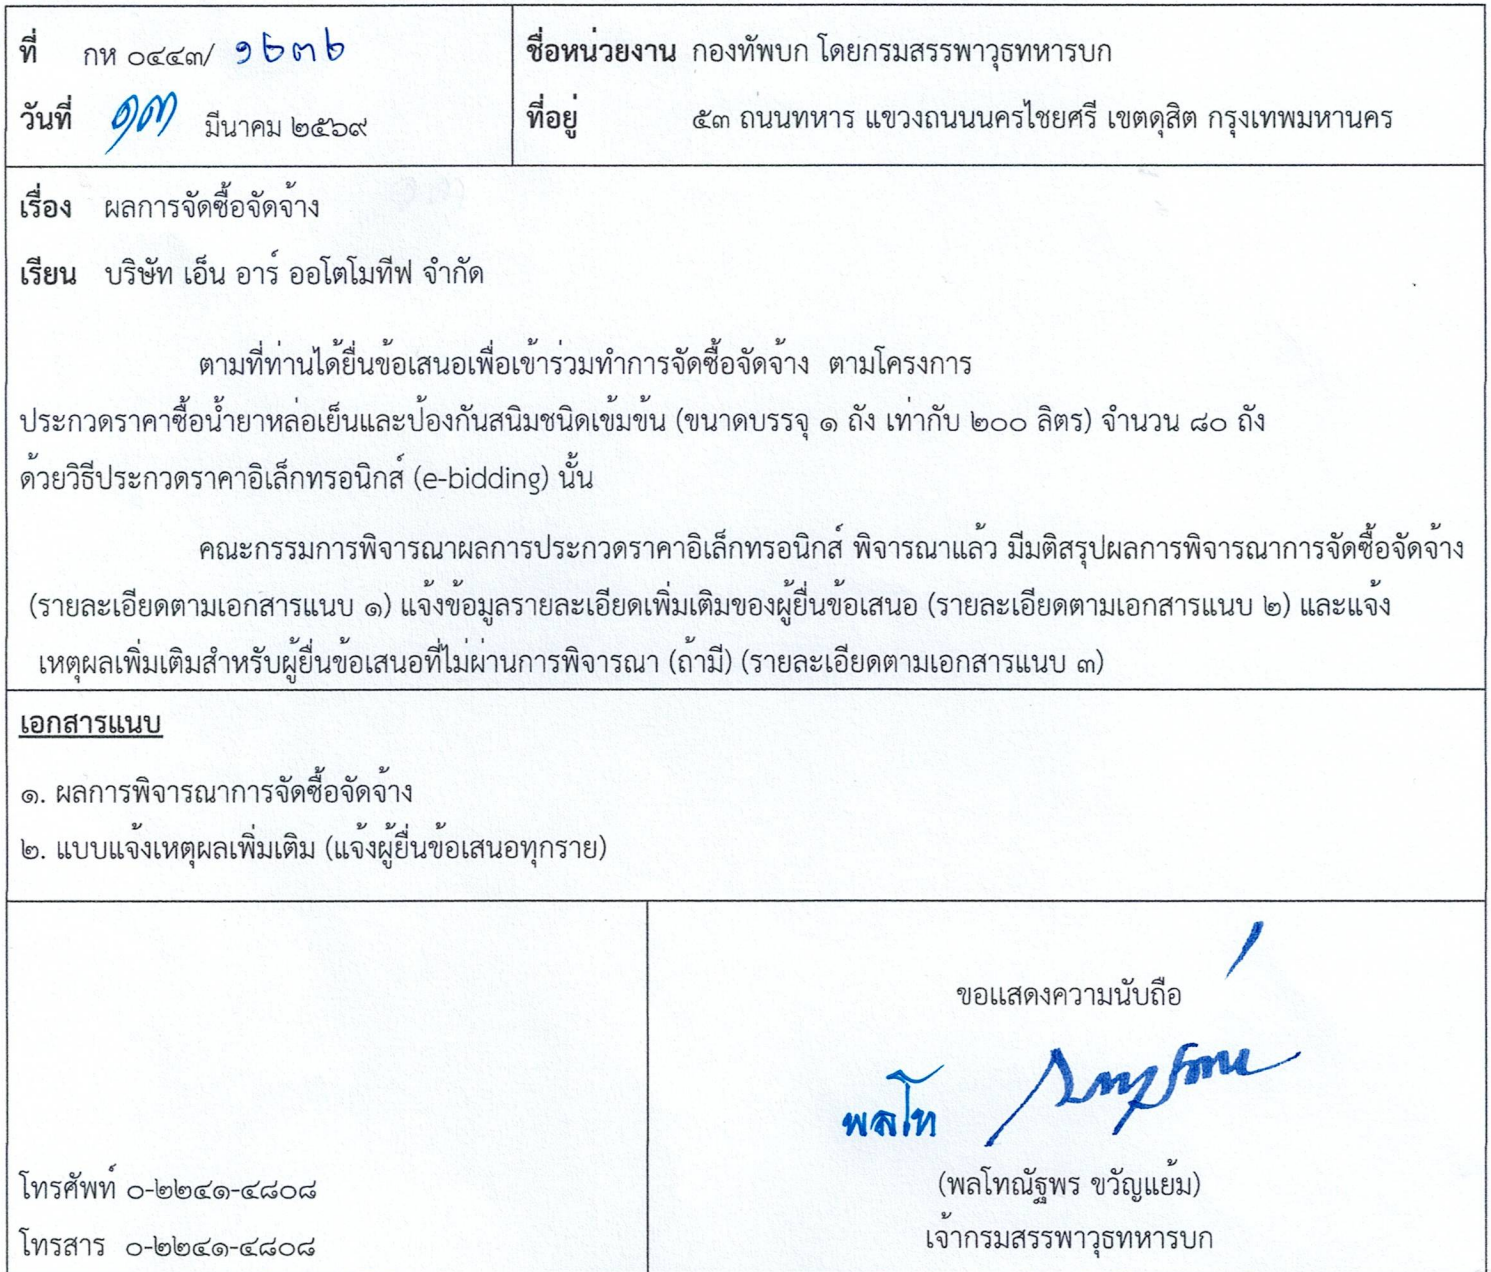 ที่ กห ๐๔๔๓/ ๑๖๓๖
วันที่ ๑๓ มีนาคม ๒๕๖๙
ชื่อหน่วยงาน กองทัพบก โดยกรมสรรพาวุธทหารบก
ที่อยู่ ๕๓ ถนนทหาร แขวงถนนนครไชยศรี เขตดุสิต กรุงเทพมหานคร
เรื่อง ผลการจัดซื้อจัดจ้าง
เรียน บริษัท เอ็น อาร์ ออโตโมทีฟ จำกัด
ตามที่ท่านได้ยื่นข้อเสนอเพื่อเข้าร่วมทำการจัดซื้อจัดจ้าง ตามโครงการ
ประกวดราคาซื้อน้ำยาหล่อเย็นและป้องกันสนิมชนิดเข้มข้น (ขนาดบรรจุ ๑ ถัง เท่ากับ ๒๐๐ ลิตร) จำนวน ๘๐ ถัง
ด้วยวิธีประกวดราคาอิเล็กทรอนิกส์ (e-bidding) นั้น
คณะกรรมการพิจารณาผลการประกวดราคาอิเล็กทรอนิกส์ พิจารณาแล้ว มีมติสรุปผลการพิจารณาการจัดซื้อจัดจ้าง
(รายละเอียดตามเอกสารแนบ ๑) แจ้งข้อมูลรายละเอียดเพิ่มเติมของผู้ยื่นข้อเสนอ (รายละเอียดตามเอกสารแนบ ๒) และแจ้ง
เหตุผลเพิ่มเติมสำหรับผู้ยื่นข้อเสนอที่ไม่ผ่านการพิจารณา (ถ้ามี) (รายละเอียดตามเอกสารแนบ ๓)
เอกสารแนบ
๑. ผลการพิจารณาการจัดซื้อจัดจ้าง
๒. แบบแจ้งเหตุผลเพิ่มเติม (แจ้งผู้ยื่นข้อเสนอทุกราย)
ขอแสดงความนับถือ
พลโท
(พลโทณัฐพร ขวัญแย้ม)
เจ้ากรมสรรพาวุธทหารบก
โทรศัพท์ ๐-๒๒๔๑-๔๘๐๘
โทรสาร ๐-๒๒๔๑-๔๘๐๘